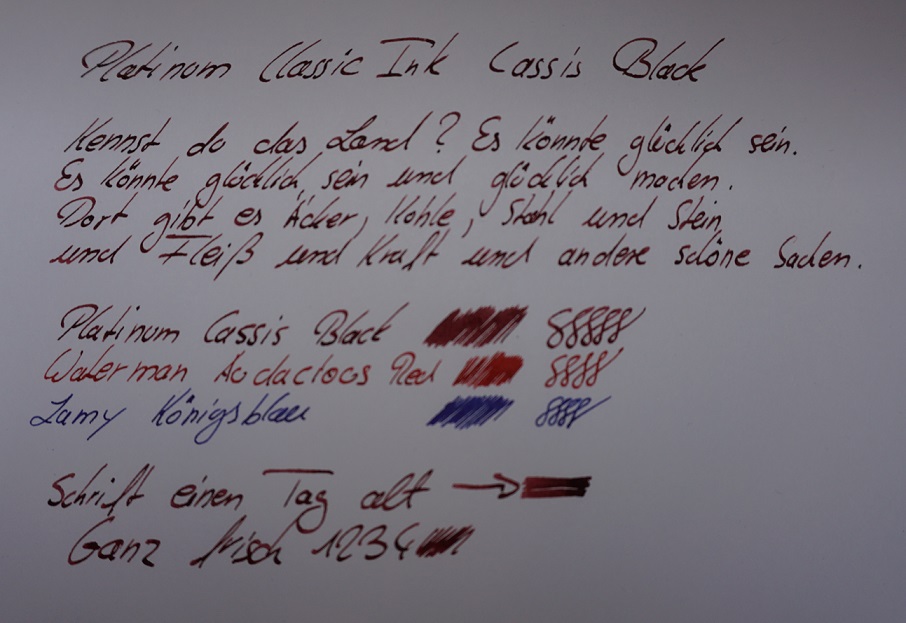 Platinum Classic Ink Cassis Black
Kennst du das Land? Es könnte glücklich sein.
Es könnte glücklich sein und glücklich machen.
Dort gibt es Äcker, Kohle, Stahl und Stein
und Fleiß und Kraft und andere schöne Sachen.
Platinum Cassis Black
Waterman Audacious Red
Lamy Königsblau
Schrift einen Tag alt →
Ganz frisch 1234